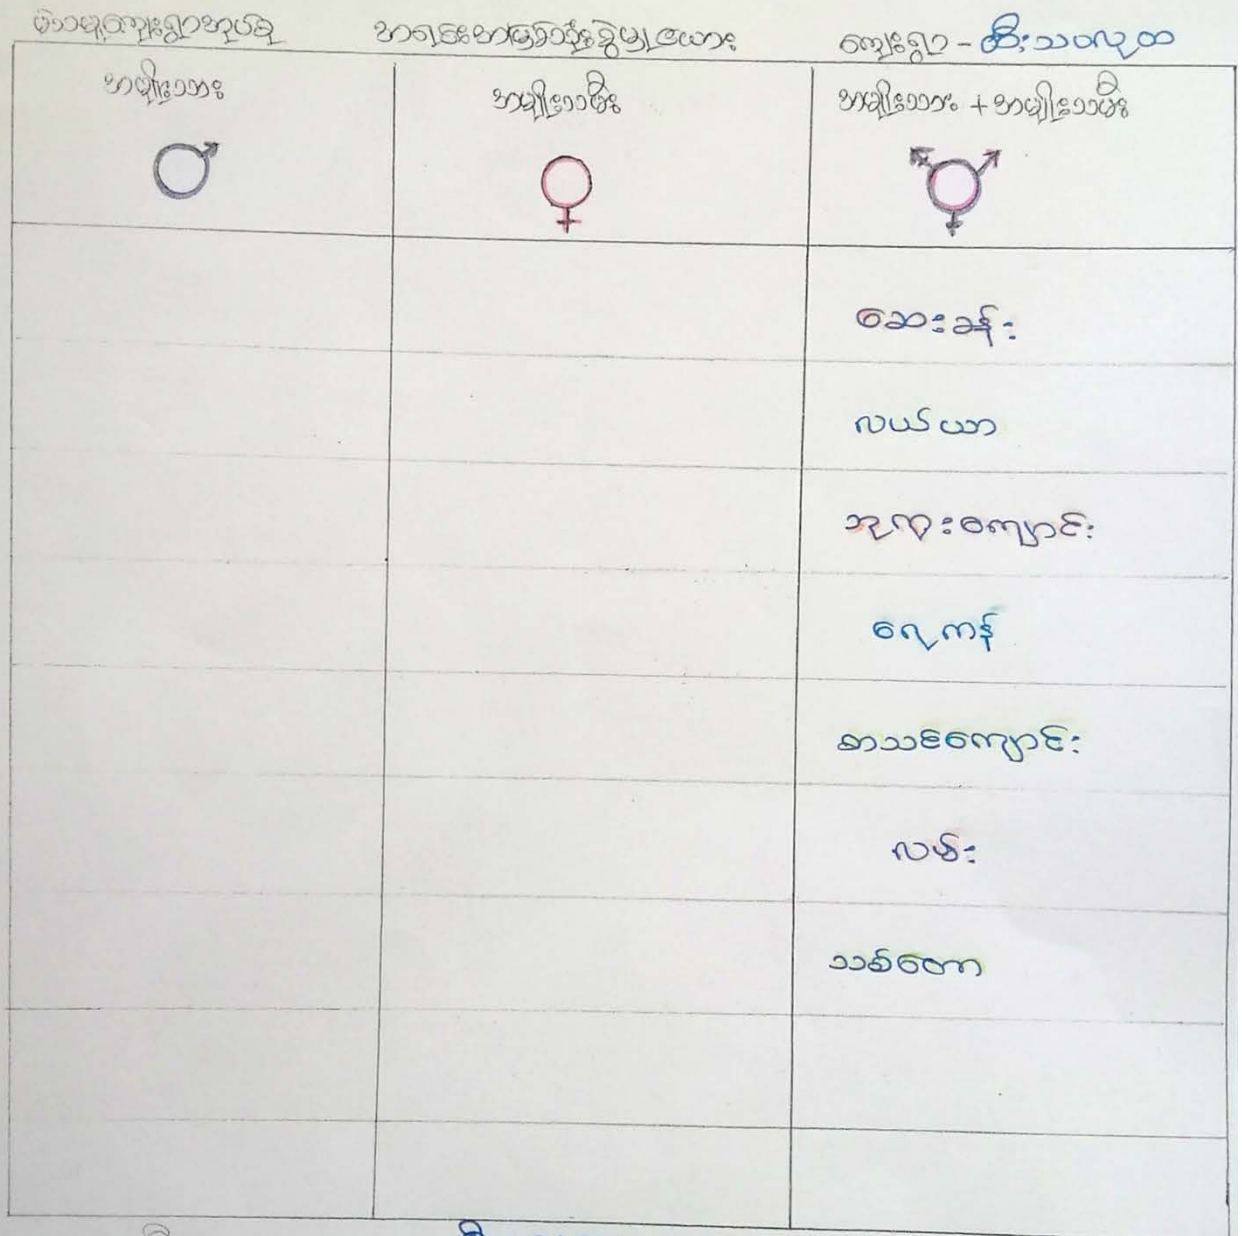 ဖဲသမူကျေးရွာအုပ်စု အရင်းအမြစ်သုံးစွဲမှုဇယား ကျေးရွာ - ထီးသဗလူထ
အမျိုးသား အမျိုးသမီး အမျိုးသား + အမျိုးသမီး
ဆေးခန်း
လယ်ယာ
ဘုရားကျောင်း
ရေကန်
စာသင်ကျောင်း
လမ်း
သစ်တော